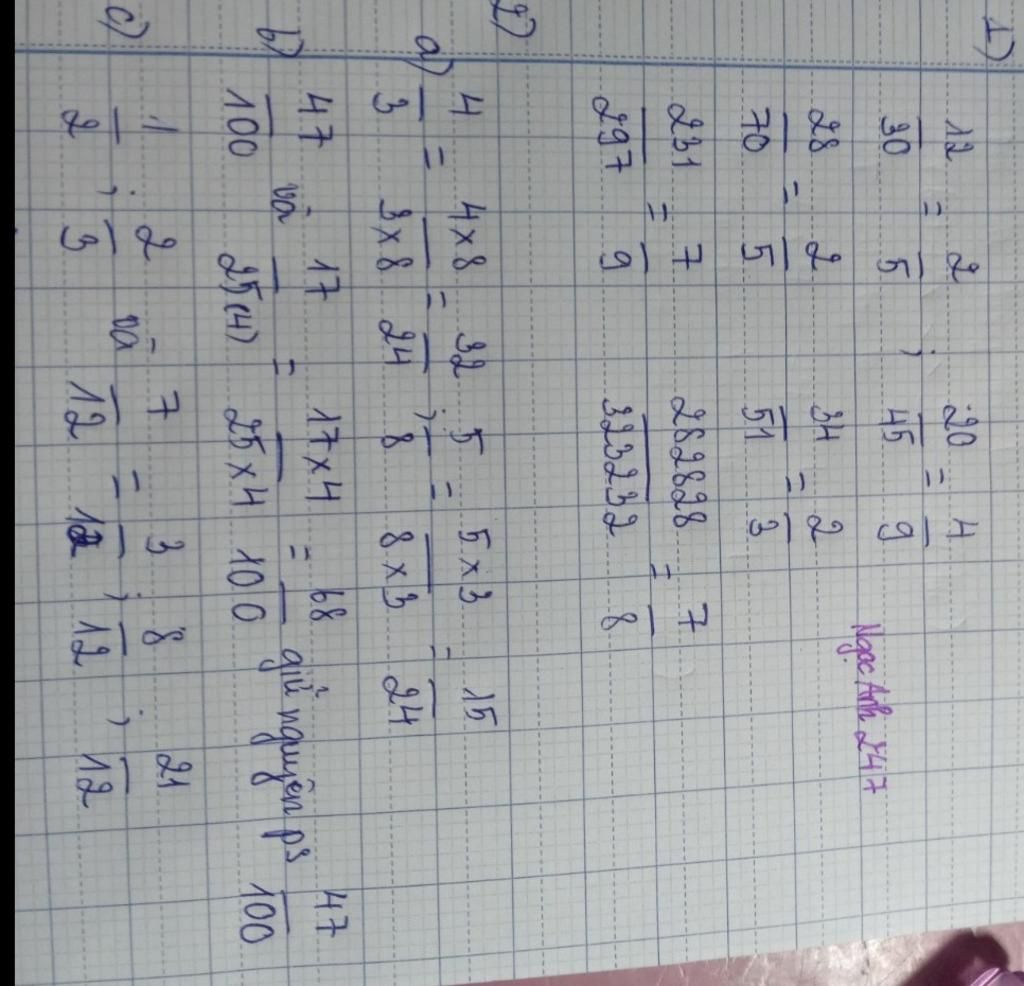 1) 12/30 = 2/5 ; 20/45 = 4/9
28/70 = 2/5 34/51 = 2/3
Ngọc Anh 247
231/297 = 7/9 282828/323232 = 7/8
2)
a) 4/3 = 4×8/3×8 = 32/24 ; 5/8 = 5×3/8×3 = 15/24
b) 47/100 và 17/25(4) = 17×4/25×4 = 68/100 giữ nguyên ps 47/100
c) 1/2 ; 2/3 và 7/12 = 3/12 ; 8/12 ; 21/12